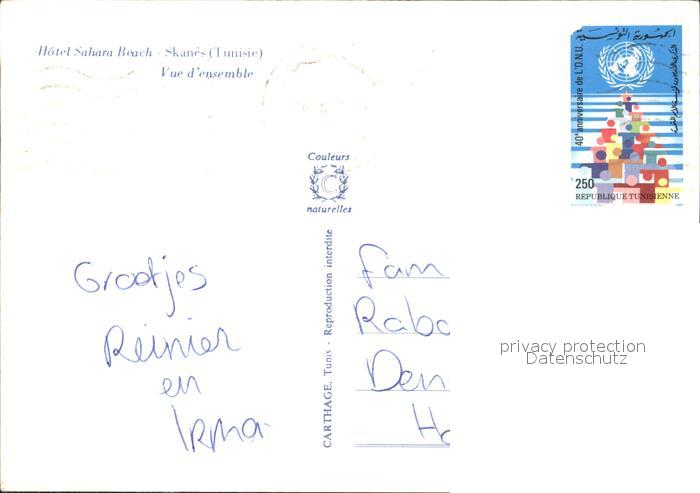 Hôtel Sahara Beach - Skanès (Tunisie)
Vue d'ensemble
Couleurs
C
naturelles
CARTHAGE, Tunis - Reproduction interdite
Grootjes
Reinier
en
Irma
Fam
Rabo
Den
Ha
الجمهورية التونسية
40e anniversaire de L'O.N.U.
250
REPUBLIQUE TUNISIENNE
privacy protection
Datenschutz